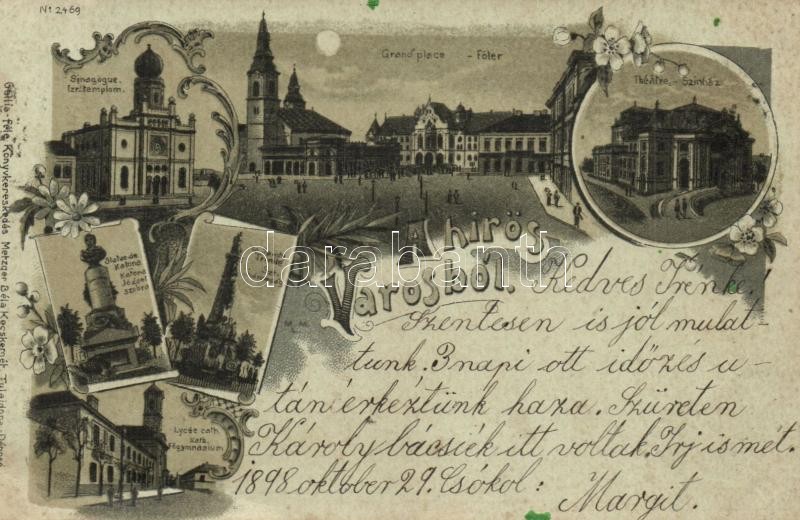 No 2469
Synagogue.
Izr. templom.
Grand place - Főtér
Théâtre. - Szinház
Statue de
Katona
Katona
József
szobra
A hirös
Városból.
M. M.
Lycée cath.
Kath.
Főgymnasium
Gallia-féle Könyvkereskedés Metzger Béla Kecskemét.
darabanth.com
Kedves Irenke!
Szentesen is jól mulat-
tunk. 3 napi ott időzés u-
tán érkeztünk haza. Szüreten
Károly bácsiék itt voltak. Irj ismét.
1898 oktober 29. Csókol:
Margit.